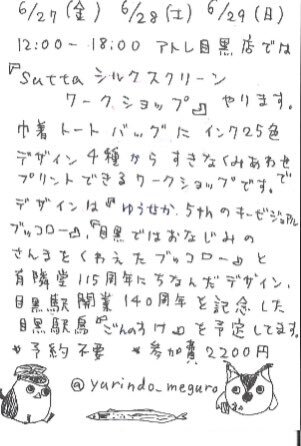 6/27(金) 6/28(土) 6/29(日)
12:00- 18:00 アトレ目黒店では
『Sutta シルクスクリーン
ワークショップ』やります。
巾着トートバッグに インク25色
デザイン4種から すきなくみあわせで
プリントできるワークショップです。
デザインは『ゆうせか 5thのキービジュアル
ブッコロー』、『目黒ではおなじみの
さんまをくわえたブッコロー』と
有隣堂115周年にちなんだデザイン、
目黒駅開業140周年を記念した
目黒駅鳥『ごんのすけ』を予定してます。
*予約不要 *参加費2200円
@yurindo_meguro